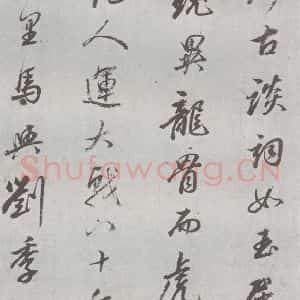 古談詞如玉
異龍脊而虎
人運大戟八十
里馬與劉季
Shufawang.CN